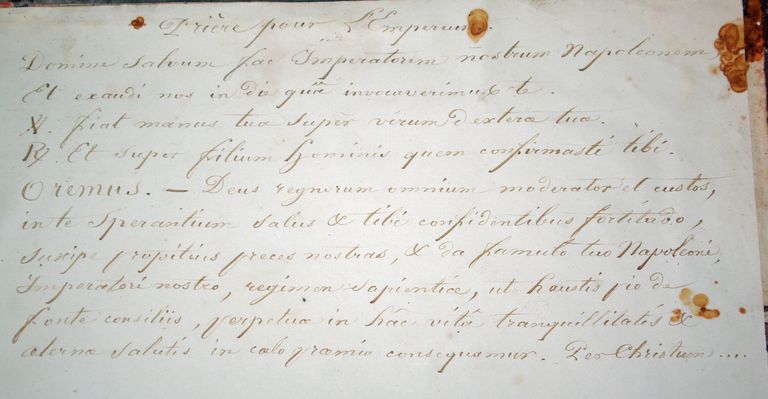 Prière pour L'Empereur.
Domine salvum fac Imperatorem nostrum Napoleonem,
Et exaudi nos in die quâ invocaverimus te.
℣. fiat manus tua super virum dexteræ tuæ.
℟. Et super filium hominis quem confirmasti tibi.
Oremus. — Deus regnorum omnium moderator et custos,
in te sperantium salus & tibi confidentibus fortitudo,
suscipe propitius preces nostras, & da famulo tuo Napoleoni,
Imperatori nostro, regimen sapientiæ, ut haustis pio de
fonte consiliis, perpetuæ in hâc vitâ tranquillitatis &
æternæ salutis in cælo præmia consequamur. Per Christum....